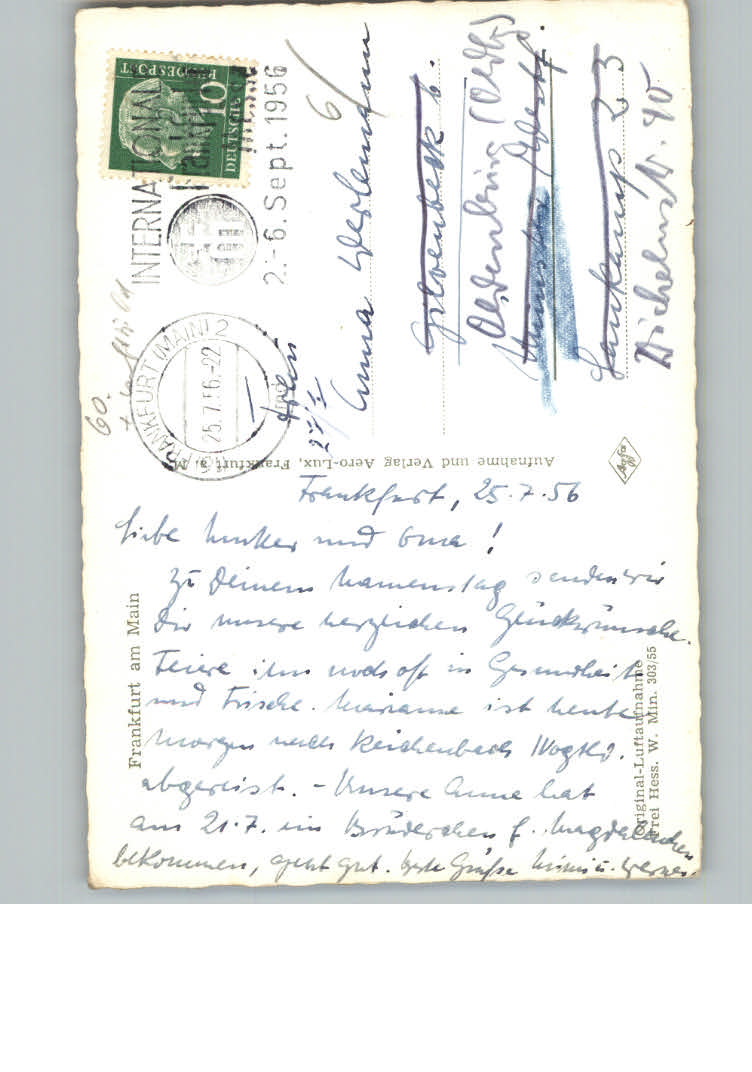 Frankfurt, 25.7.56
Liebe Mutter und Oma!
Zu Deinem Namenstag senden wir
Dir unsere herzlichen Glückwünsche.
Feiere ihn noch oft in Gesundheit
und Frische. Marianne ist heute
Morgen nach Reichenbach Vogtld.
abgereist. - Unsere Anne hat
am 21.7. ein Brüderchen f. Magdalenchen
bekommen, geht gut. Grüße
Frankfurt am Main
Original-Luftaufnahme
Frei Hess. W. Min. 303/55
Aufnahme und Verlag Aero-Lux, Frankfurt a. M.
Agfa
DEUTSCHE
BUNDESPOST
10
INTERNATIONAL
2.-6. Sept. 1956
FRANKFURT (MAIN) 2
25.7.56.-22
60.
6
Anna
b.
Oldenburg (Oldbg)
Westf.
23
40